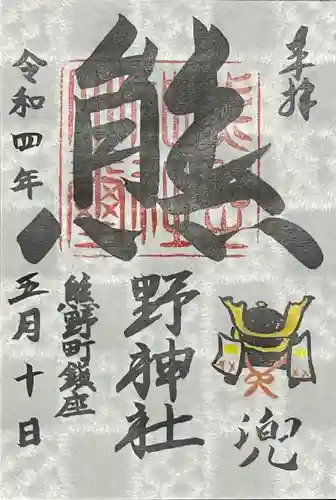 奉拝
熊野神社
兜
熊野町鎮座
令和四年五月十日